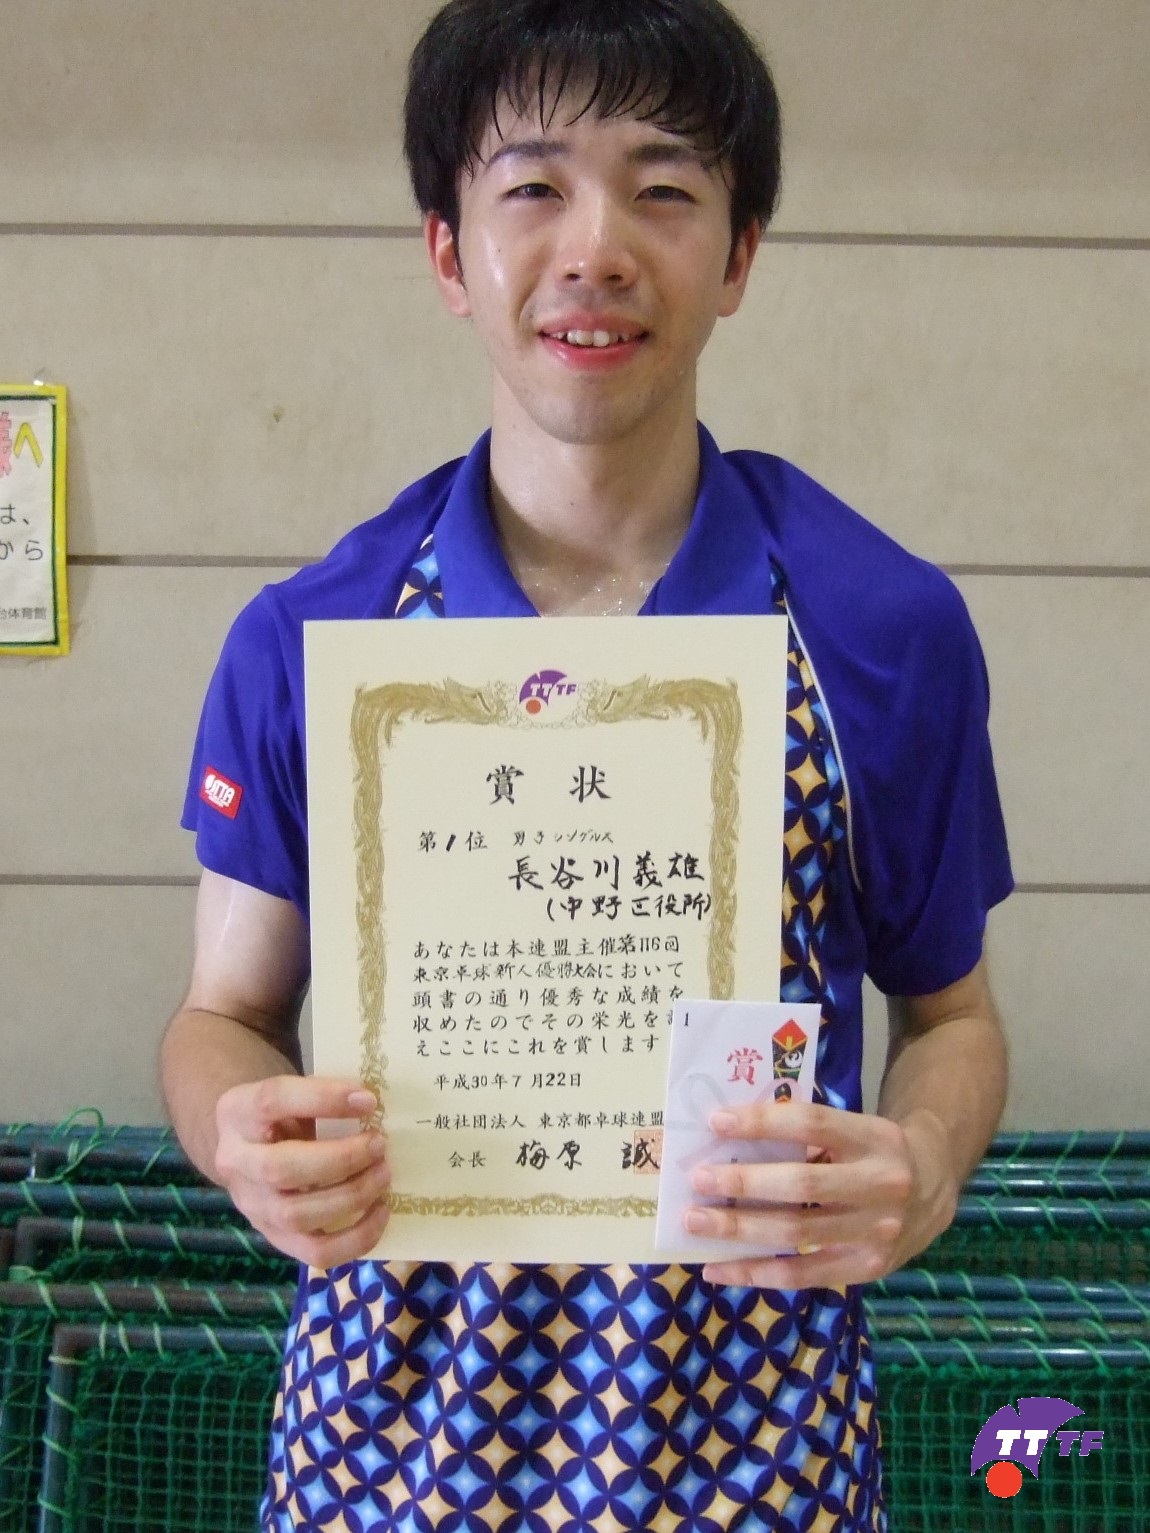 は、
から
台体育館
JTTA
TTTF
賞 状
第1位 男子シングルス
長谷川義雄
(中野区役所)
あなたは本連盟主催第116回
東京卓球新人優勝大会において
頭書の通り優秀な成績を
収めたのでその栄光を
えここにこれを賞します
平成30年7月22日
一般社団法人 東京都卓球連盟
会長 梅原 誠
1
賞
TTTF